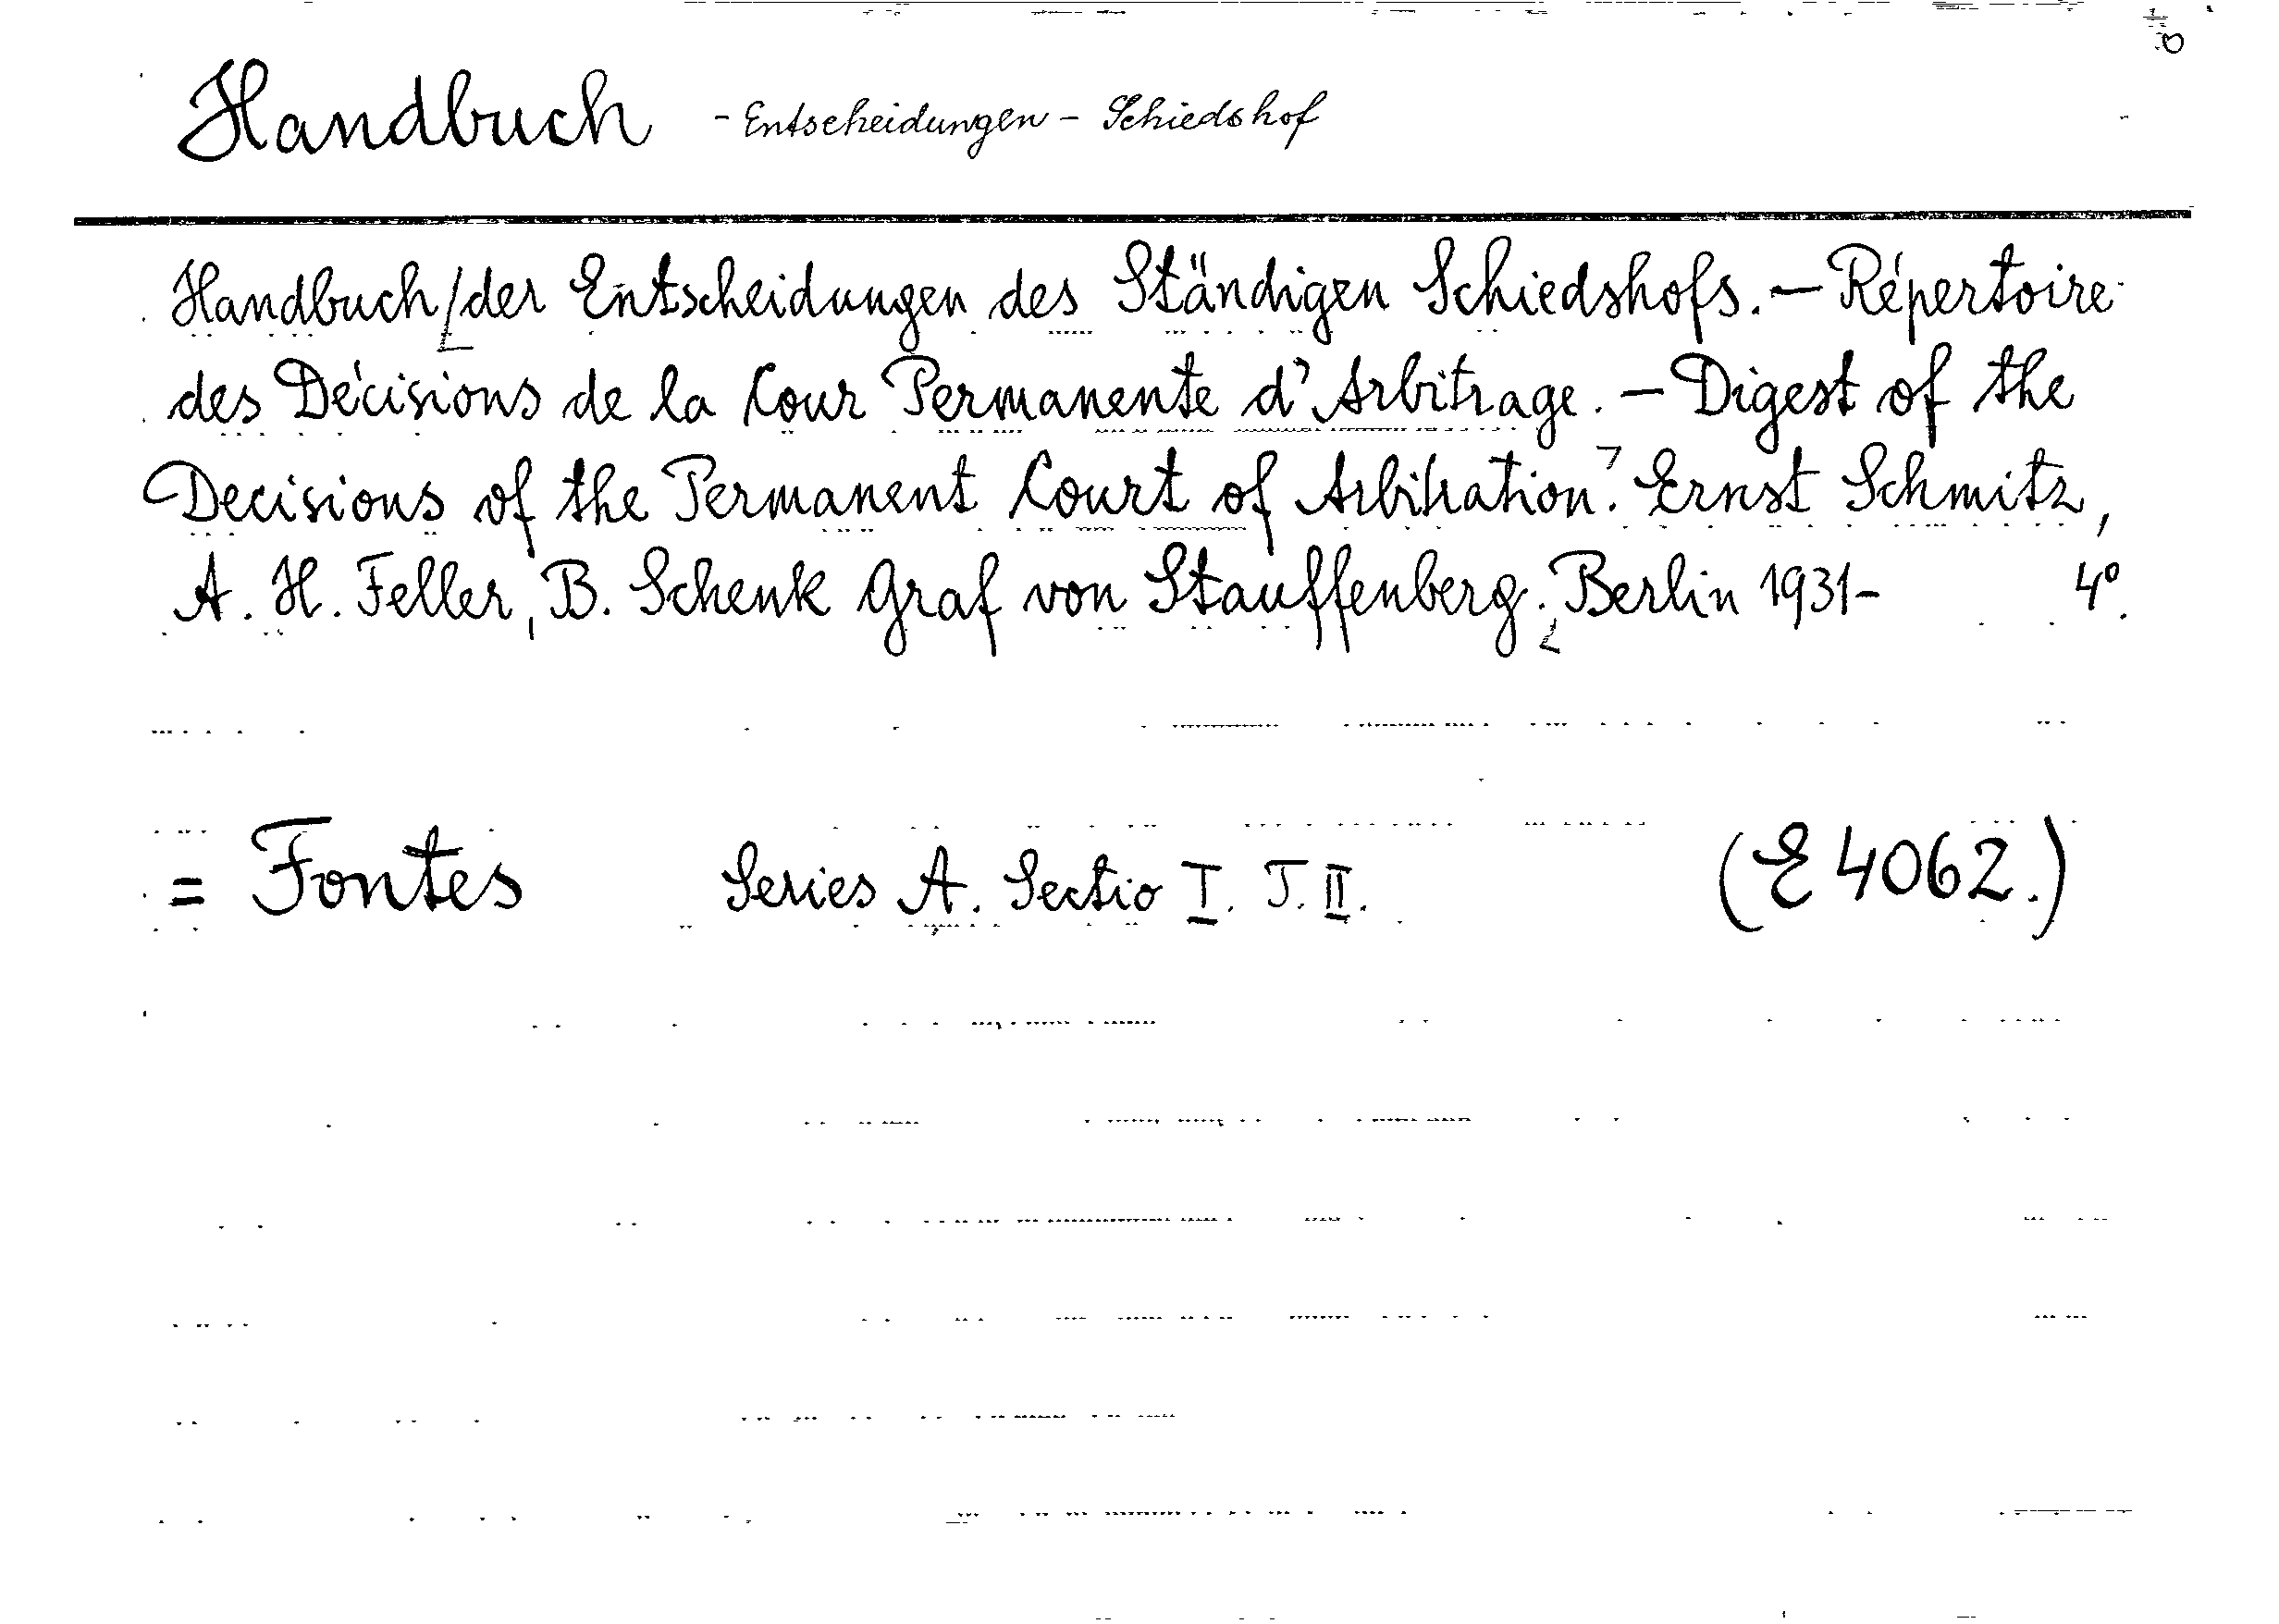 Handbuch - Entscheidungen - Schiedshof
Handbuch/der Entscheidungen des Ständigen Schiedshofs. — Répertoire
des Décisions de la Cour Permanente d'Arbitrage. — Digest of the
Decisions of the Permanent Court of Arbitration. Ernst Schmitz,
A. H. Feller, B. Schenk Graf von Stauffenberg. Berlin 1931- 4º.
= Fontes Series A. Sectio I. T. II. (E 4062.)